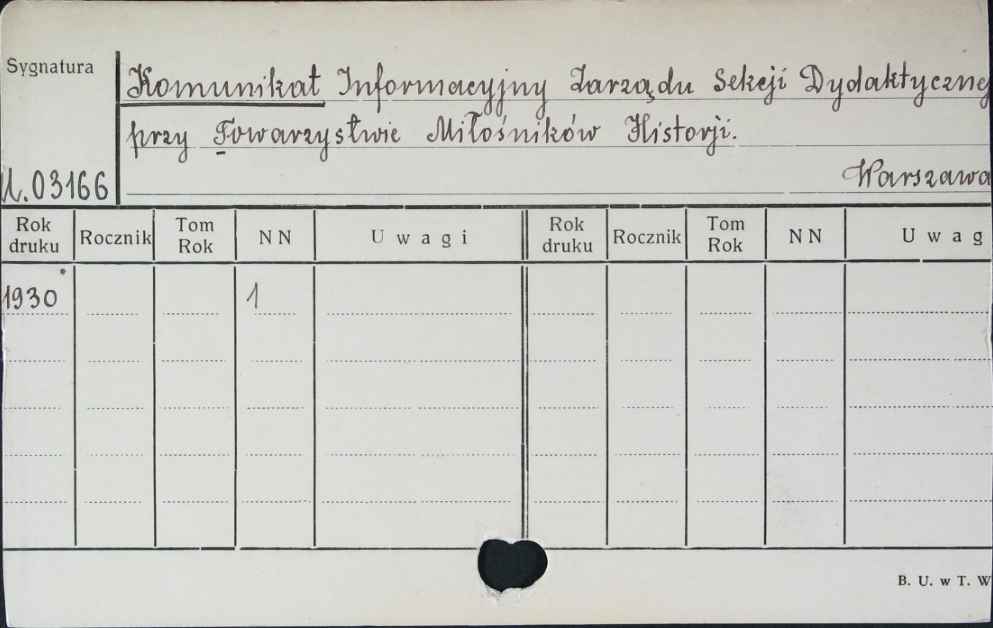 Sygnatura
Komunikat Informacyjny Zarządu Sekcji Dydaktycznej
przy Towarzystwie Miłośników Historji.
U.03166
Warszawa
Rok druku Rocznik Tom Rok NN Uwagi Rok druku Rocznik Tom Rok NN Uwag
1930 1
B. U. w T. W